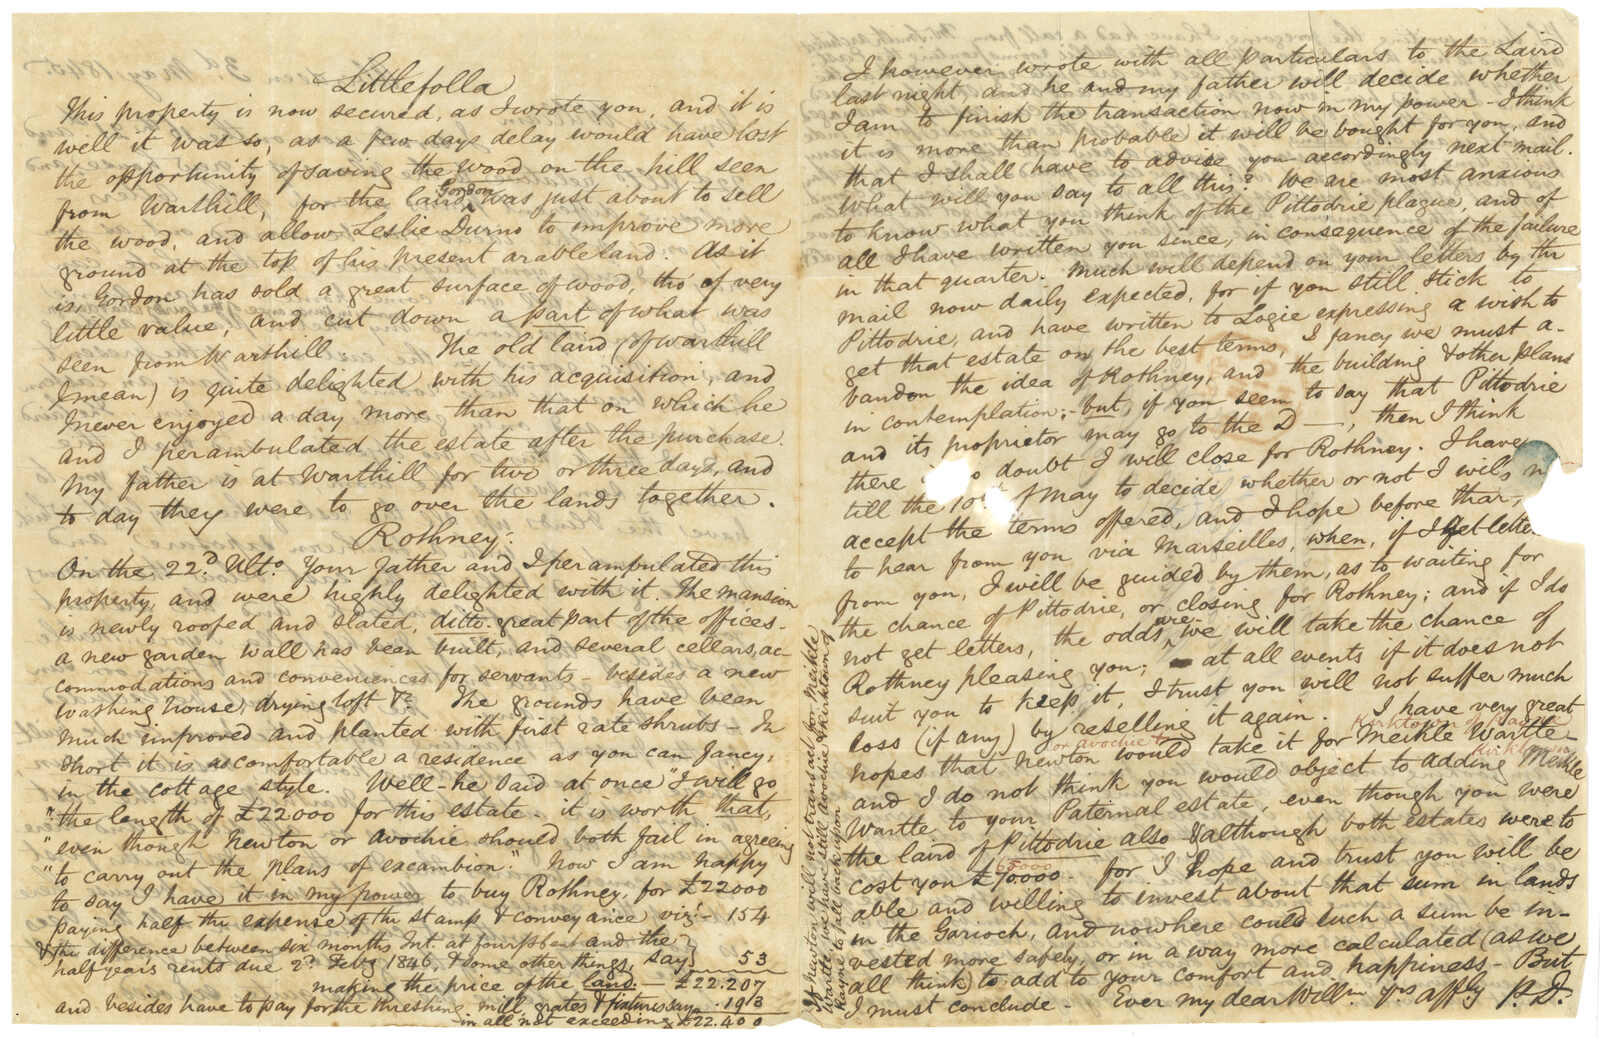 Littlefolla
This property is now secured, as I wrote you, and it is
well it was so, as a few days delay would have lost
the opportunity of saving the wood on the hill seen
from Warthill, for the laird Gordon was just about to sell
the wood, and allow Leslie Durno to improve more
ground at the top of his present arable land. As it
is, Gordon has sold a great surface of wood, tho' of very
little value, and cut down a part of what was
seen from Warthill. The old laird (of Warthill
I mean) is quite delighted with his acquisition, and
I never enjoyed a day more than that on which he
and I perambulated the estate after the purchase.
My father is at Warthill for two or three days, and
to day they were to go over the lands together.
Rothney.
On the 22d. Ulto. Your father and I perambulated this
property, and were highly delighted with it. The mansion
is newly roofed and slated, ditto great part of the offices -
a new garden wall has been built, and several cellars, ac-
commodations and conveniences for servants - besides a new
washing house, drying loft &c. The grounds have been
much improved and planted with first rate shrubs - In
short it is as comfortable a residence as you can fancy,
in the cottage style. Well - he said at once "I will go
"the length of £22000 for this estate - it is worth that,
"even though Newton or Avochie should both fail in agreeing
"to carry out the plans of excambion". Now I am happy
to say I have it in my power to buy Rothney, for £22000
paying half the expense of the stamp & conveyance viz:- 154
& the difference between six months Int. at four p cent and the
half years rents due 2d. Feby 1846, & some other things, say 53
making the price of the land - £22.207
and besides have to pay for the threshing mill, grates & fixtures say 193
in all not exceeding £22.400
I however wrote with all particulars to the Laird
last night, and he and my father will decide whether
I am to finish the transaction now in my power - I think
it is more than probable it will be bought for you, and
that I shall have to advise you accordingly next mail.
What will you say to all this? We are most anxious
to know what you think of the Pittodrie plague, and of
all I have written you since, in consequence of the failure
in that quarter. Much will depend on your letters by the
mail now daily expected, for if you still stick to
Pittodrie, and have written to Logie expressing a wish to
get that estate on the best terms, I fancy we must a-
bandon the idea of Rothney, and the building & other plans
in contemplation; - but, if you seem to say that Pittodrie
and its proprietor may go to the D—, then I think
there doubt I will close for Rothney. I have
till the 10th of May to decide whether or not I will
accept the terms offered, and I hope before that,
to hear from you via Marseilles, when, if I get letters
from you, I will be guided by them, as to waiting for
the chance of Pittodrie, or closing for Rothney; and if I do
not get letters, the odds are, we will take the chance of
Rothney pleasing you; - at all events if it does not
suit you to keep it, I trust you will not suffer much
loss (if any) by reselling it again. I have very great
hopes that Newton or Avochie would take it for Meikle Wartle -
and I do not think you would object to adding Meikle
Wartle to your Paternal estate, even though you were
the laird of Pittodrie also & although both estates were to
cost you £70000 65000 - for I hope and trust you will be
able and willing to invest about that sum in lands
in the Garioch, and nowhere could such a sum be in-
vested more safely, or in a way more calculated (as we
all think) to add to your comfort and happiness - But
I must conclude - Ever my dear Willm yrs affly P.D.
If Newton will not transact for Meikle
Wartle we have still Avochie & Kirktown of
Rayne to fall back upon